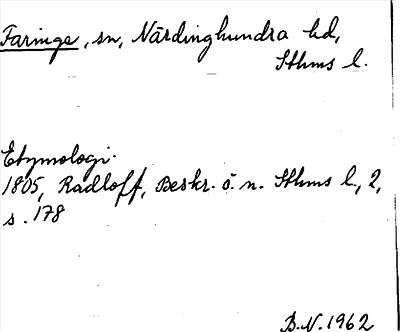 Faringe, sn, Närdinghundra hd,
Sthms l.
Etymologi.
1805, Radloff, Beskr. ö. n. Sthms l., 2,
s. 178
B.N. 1962